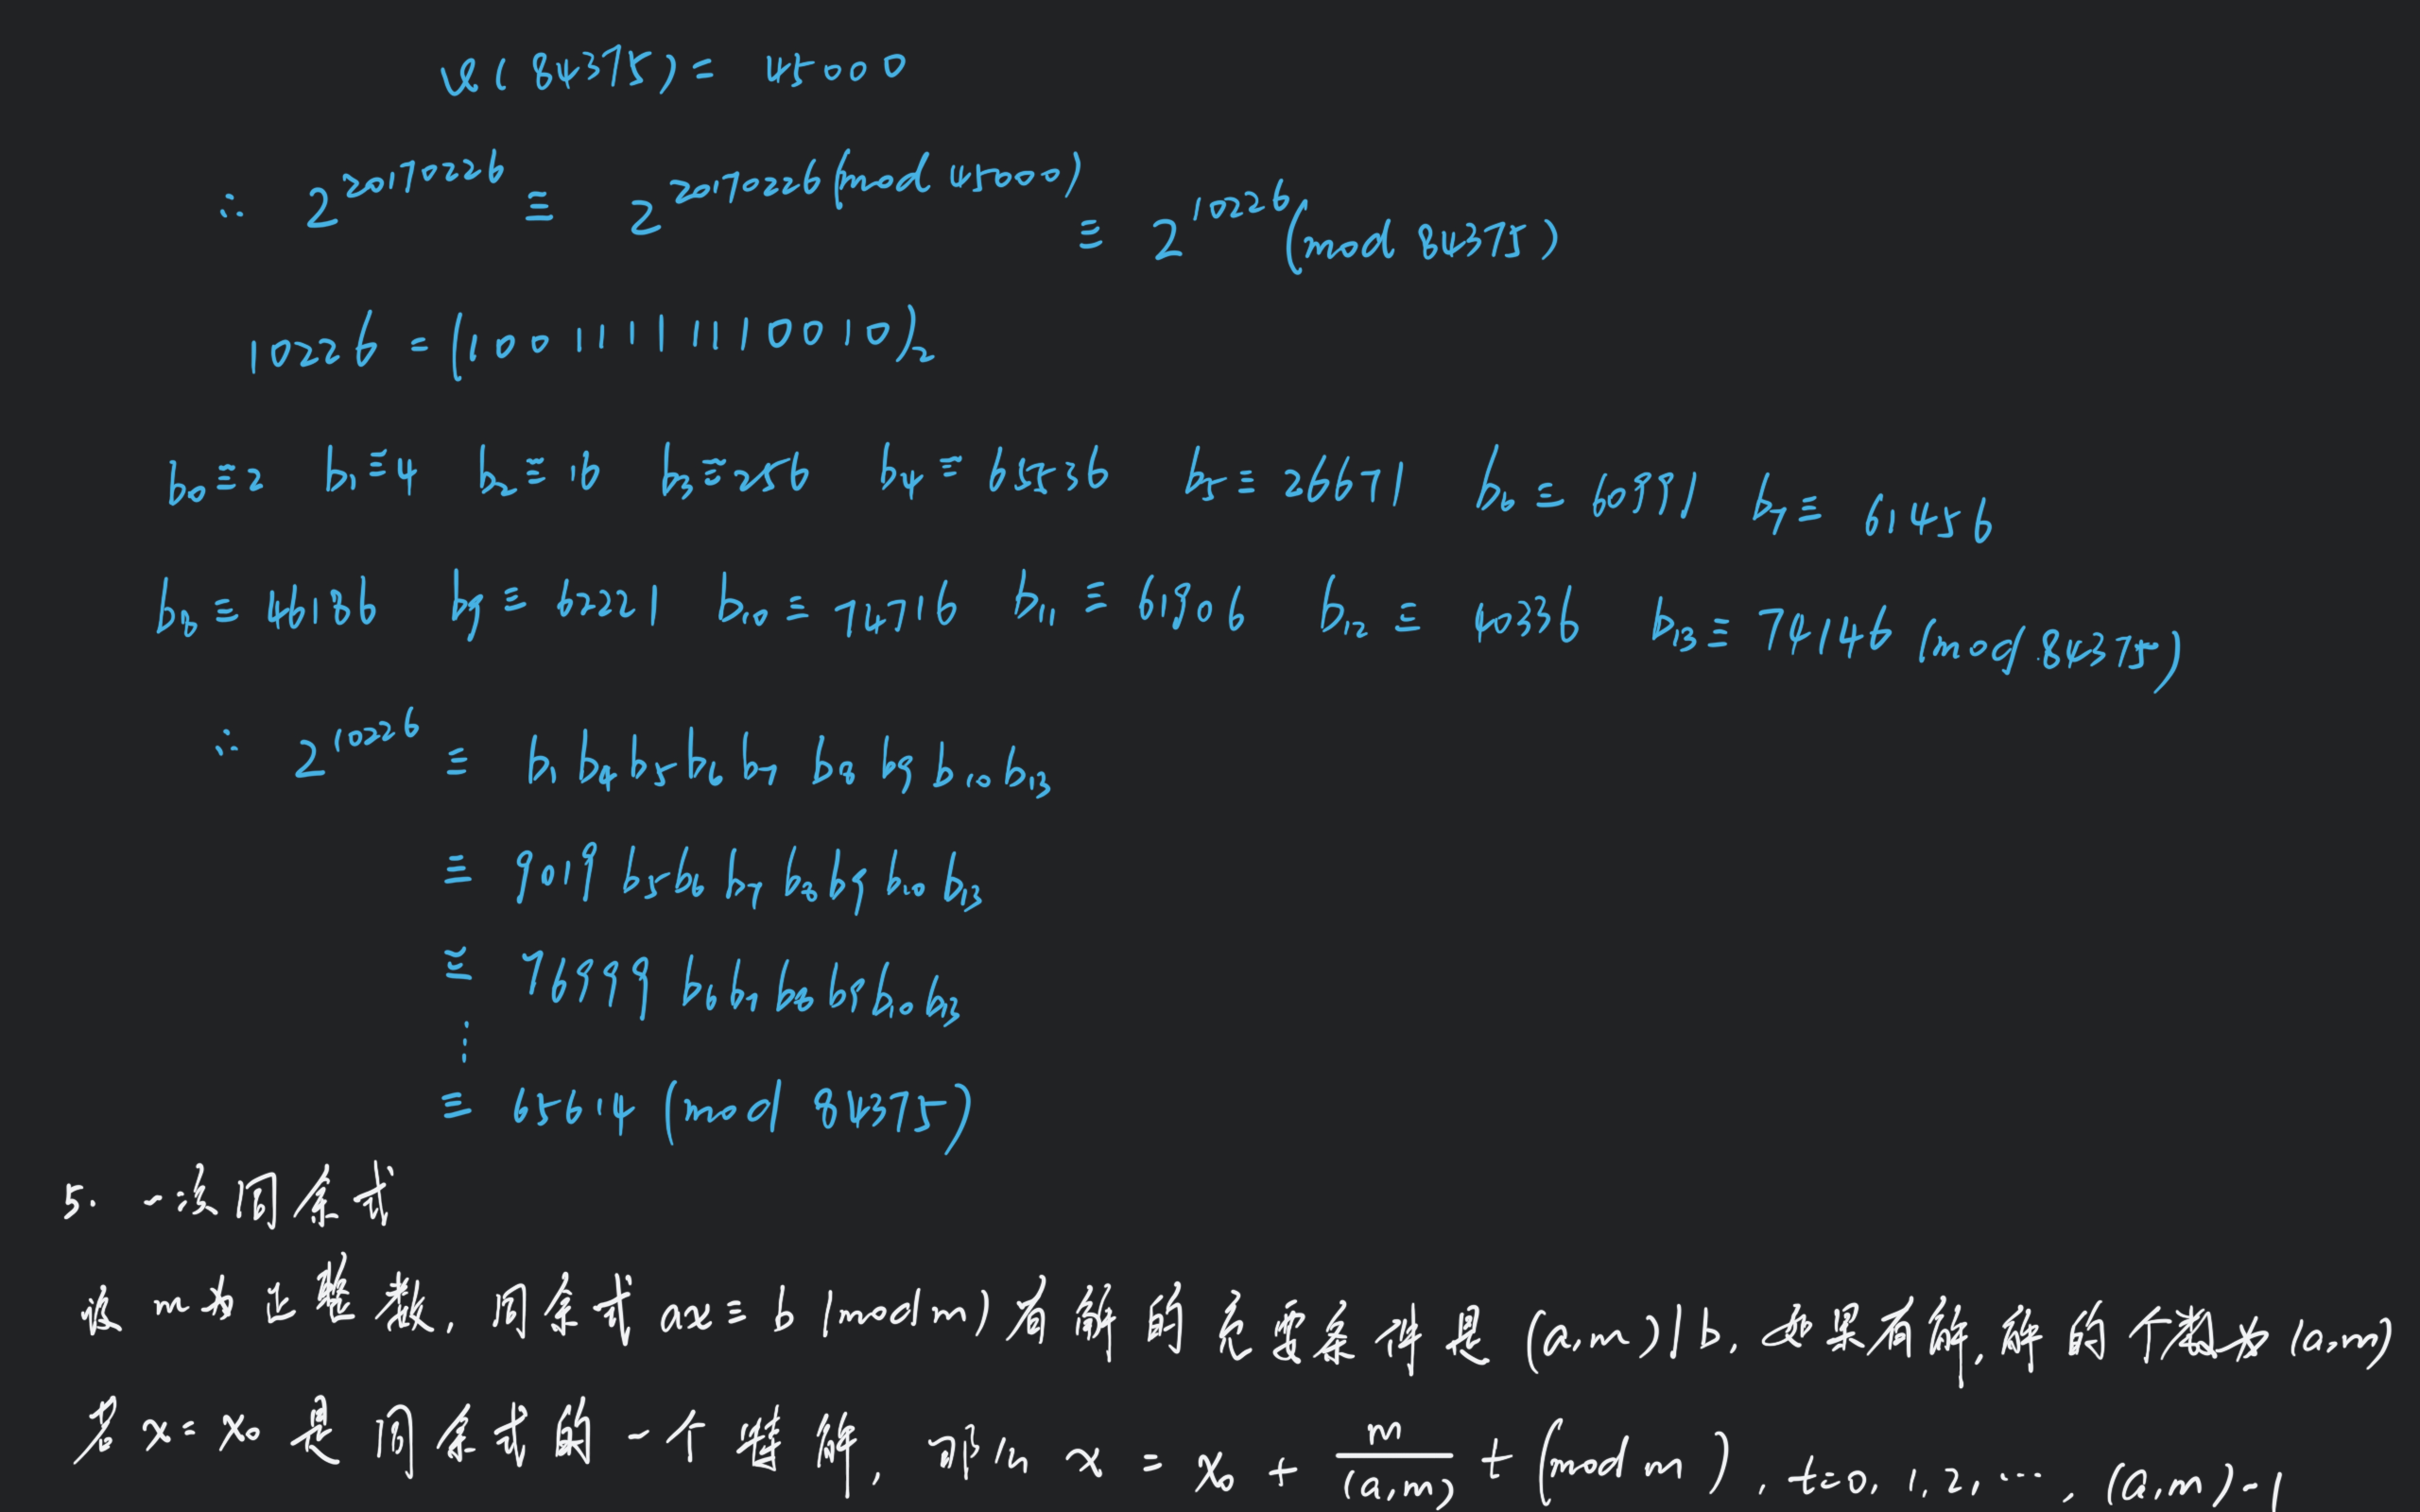 φ(84375) = 45000
∴ 2^20170226 ≡ 2^20170226(mod 45000) ≡ 2^10226 (mod 84375)
10226 = (10011111110010)₂
b₀≡2 b₁≡4 b₂≡16 b₃≡256 b₄≡65536 b₅≡26671 b₆≡60991 b₇≡61456
b₈≡46186 b₉≡62221 b₁₀≡74716 b₁₁≡61906 b₁₂≡40336 b₁₃≡74146 (mod 84375)
∴ 2^10226 ≡ b₁b₄b₅b₆b₇b₈b₉b₁₀b₁₃
≡ 9019 b₅b₆b₇b₈b₉b₁₀b₁₃
≡ 76999 b₆b₇b₈b₉b₁₀b₁₃
⋮
≡ 65614 (mod 84375)
5. 一次同余式
设 m为正整数, 同余式 ax≡b (mod m) 有解的充要条件是 (a,m)|b, 如果有解, 解的个数为 (a,m)
若 x=x₀ 是同余式的一个特解, 那么 x = x₀ + m/(a,m) t (mod m), t=0,1,2,…,(a,m)-1